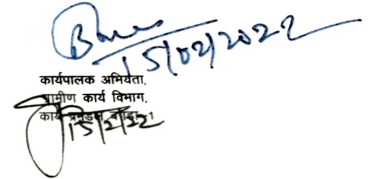 15/02/2022
कार्यपालक अभियंता,
ग्रामीण कार्य विभाग,
कार्य प्रमंडल
15/2/22